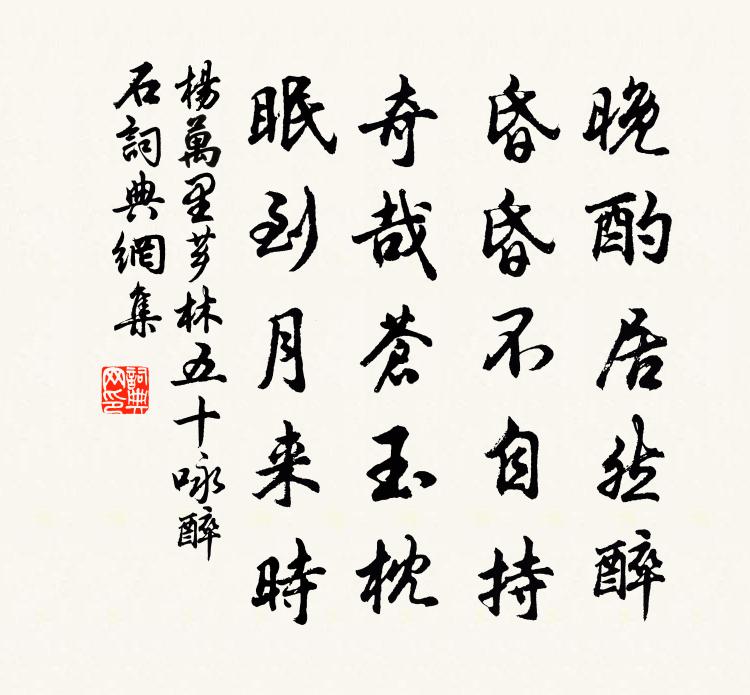 晚酌居然醉
昏昏不自持
奇哉蒼玉枕
眠到月来時
楊萬里芗林五十咏醉
石詞典網集
詞典网印